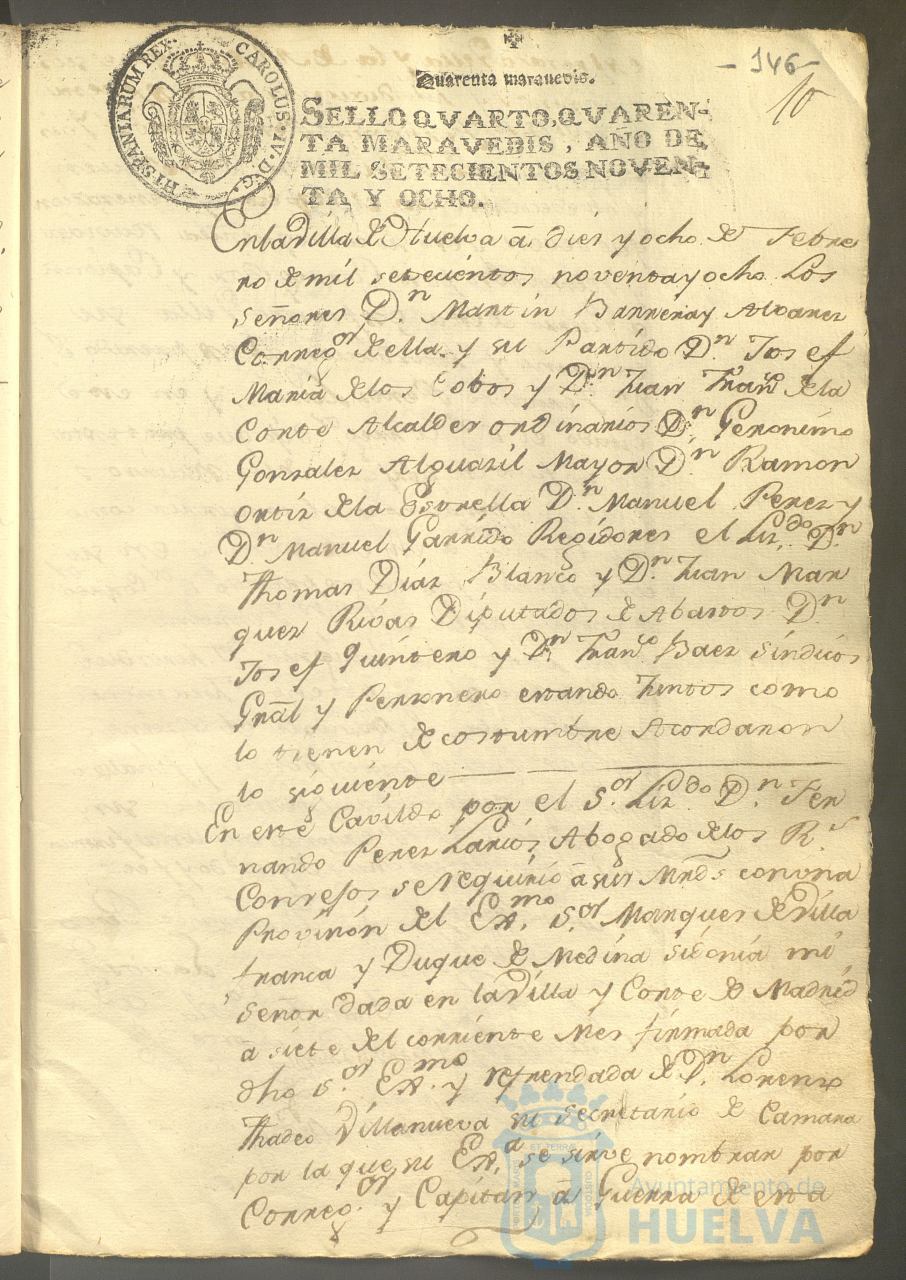 - 146 -
10
HISPANIARUM REX. CAROLUS·IV·D·G·
Quarenta maravedis.
SELLO QVARTO, QVAREN-
TA MARAVEDIS, AÑO DE
MIL SETECIENTOS NOVEN-
TA Y OCHO.
En la Villa de Huelva â dies y ocho de Febre
ro de mil setecientos noventa y ocho Los
señores Dn. Martin Barrera y Alvarez
Correg.or de ella y su Partido Dn. Josef
Maria de los Cobos y Dn. Juan Fran.co de la
Corte Alcaldes ordinarios Dn. Geronimo
Gonzalez Alguazil Mayor Dn. Ramon
Ortiz de la Estrella Dn. Manuel Perez y
Dn. Manuel Garrido Regidores el Liz.do Dn
Thomas Diaz Blanco y Dn. Juan Mar
quez Rivas Diputados de Abastos Dn
Josef Quintero y Dn. Fran.co Baez sindicos
Gral y Personero estando Juntos como
lo tienen de costumbre Acordaron
lo siguiente
En este Cavildo por el S.or Liz.do Dn. Fer
nando Perez Larios Abogado de los R.s
Consejos se requirió â sus Mrds con una
Provision del Ex.mo S.or Marques de Villa
franca y Duque de Medina sidonia mi
señor dada en la Villa y Corte de Madrid
â siete del corriente Mes firmada por
dho S.or Ex.mo y refrendada de Dn. Lorenzo
Thadeo Villanueva su secretario de Camara
por la que su Ex.a se sirve nombrar por
Correg.or y Capitan â Guerra de esta
Ayuntamiento de
HUELVA